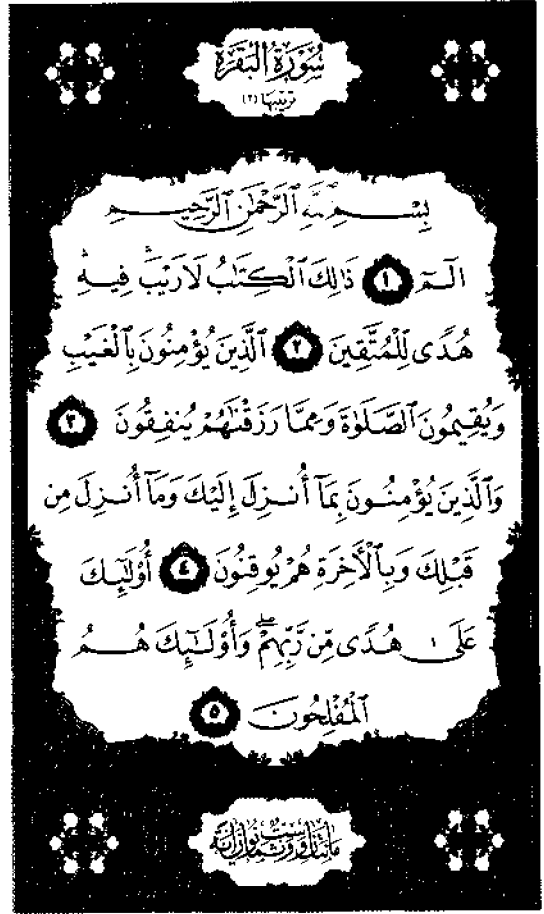 سُورَةُ الْبَقَرَةِ
ترتيبها (٢)
بِسْمِ ٱللَّهِ ٱلرَّحْمَٰنِ ٱلرَّحِيمِ
الٓمٓ ١ ذَٰلِكَ ٱلْكِتَٰبُ لَا رَيْبَ ۛ فِيهِ ۛ
هُدًى لِّلْمُتَّقِينَ ٢ ٱلَّذِينَ يُؤْمِنُونَ بِٱلْغَيْبِ
وَيُقِيمُونَ ٱلصَّلَوٰةَ وَمِمَّا رَزَقْنَٰهُمْ يُنفِقُونَ ٣
وَٱلَّذِينَ يُؤْمِنُونَ بِمَآ أُنزِلَ إِلَيْكَ وَمَآ أُنزِلَ مِن
قَبْلِكَ وَبِٱلْأَخِرَةِ هُمْ يُوقِنُونَ ٤ أُو۟لَٰٓئِكَ
عَلَىٰ هُدًى مِّن رَّبِّهِمْ ۖ وَأُو۟لَٰٓئِكَ هُمُ
ٱلْمُفْلِحُونَ ٥
مائتان وست وثمانون آية